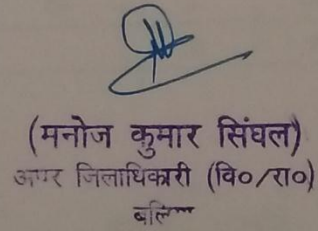 (मनोज कुमार सिंघल)
अपर जिलाधिकारी (वि०/रा०)
बलिया